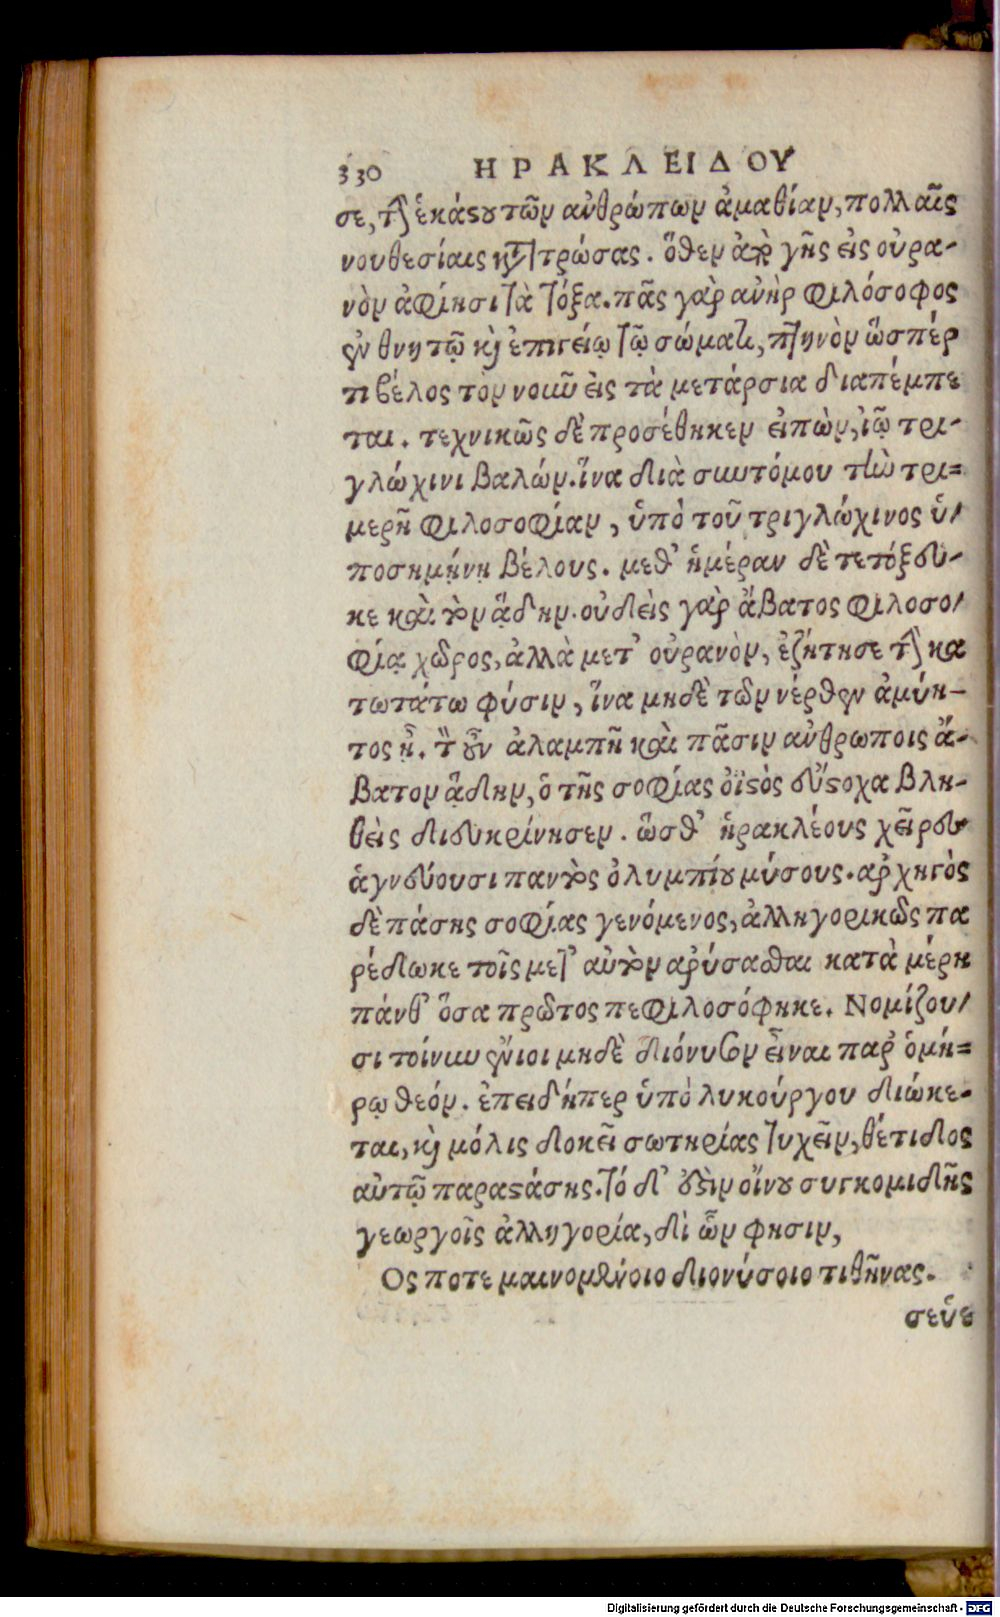 330 ΗΡΑΚΛΕΙΔΟΥ
σε, τὴν ἑκάστου τῶν ἀνθρώπων ἀμαθίαν, πολλαῖς
νουθεσίαις κατατρώσας. ὅθεν ἀπὸ γῆς εἰς οὐρα-
νὸν ἀφίησι τὰ τόξα. πᾶς γὰρ ἀνὴρ φιλόσοφος
ἐν θνητῷ καὶ ἐπιγείῳ τῷ σώματι, πτηνὸν ὥσπέρ
τι βέλος τὸν νοῦν εἰς τὰ μετάρσια διαπέμπε
ται. τεχνικῶς δὲ προσέθηκεν εἰπὼν, ἰῷ τρι-
γλώχινι βαλών. ἵνα διὰ συντόμου τὴν τρι=
μερῆ φιλοσοφίαν, ὑπὸ τοῦ τριγλώχινος ὑ/
ποσημήνῃ βέλους. μεθ' ἡμέραν δὲ τετόξευ-
κε καὶ τὸν ᾅδην. οὐδεὶς γὰρ ἄβατος φιλοσο/
φίᾳ χῶρος, ἀλλὰ μετ' οὐρανὸν, ἐζήτησε τὴν κα
τωτάτω φύσιν, ἵνα μηδὲ τῶν νέρθεν ἀμύη-
τος ᾖ. τὸν οὖν ἀλαμπῆ καὶ πᾶσιν ἀνθρωποις ἄ-
βατον ᾅδην, ὁ τῆς σοφίας ὀϊστὸς εὔστοχα βλη-
θεὶς διευκρίνησεν. ὥσθ' ἡρακλέους χεῖρες
ἁγνεύουσι παντὸς ὀλυμπίου μύσους. ἀρχηγὸς
δὲ πάσης σοφίας γενόμενος, ἀλληγορικῶς πα
ρέδωκε τοῖς μετ' αὐτὸν ἀρύσασθαι κατὰ μέρη
πάνθ' ὅσα πρῶτος πεφιλοσόφηκε. Νομίζου/
σι τοίνυν ἔνιοι μηδὲ διόνυσον εἶναι παρ' ὁμή=
ρῳ θεόν. ἐπειδήπερ ὑπὸ λυκούργου διώκε-
ται, καὶ μόλις δοκεῖ σωτηρίας τυχεῖν, θέτιδος
αὐτῷ παραστάσης. τό δ' ἐστὶν οἴνου συγκομιδῆς
γεωργοῖς ἀλληγορία, δι' ὧν φησιν,
Ος ποτε μαινομένοιο διονύσοιο τιθῆνας.
σεῦε
Digitalisierung gefördert durch die Deutsche Forschungsgemeinschaft - DFG